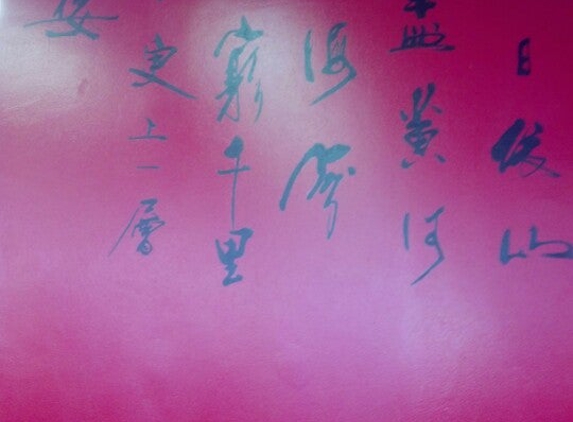 日依山
盡黃河
海流
窮千里
更上一層